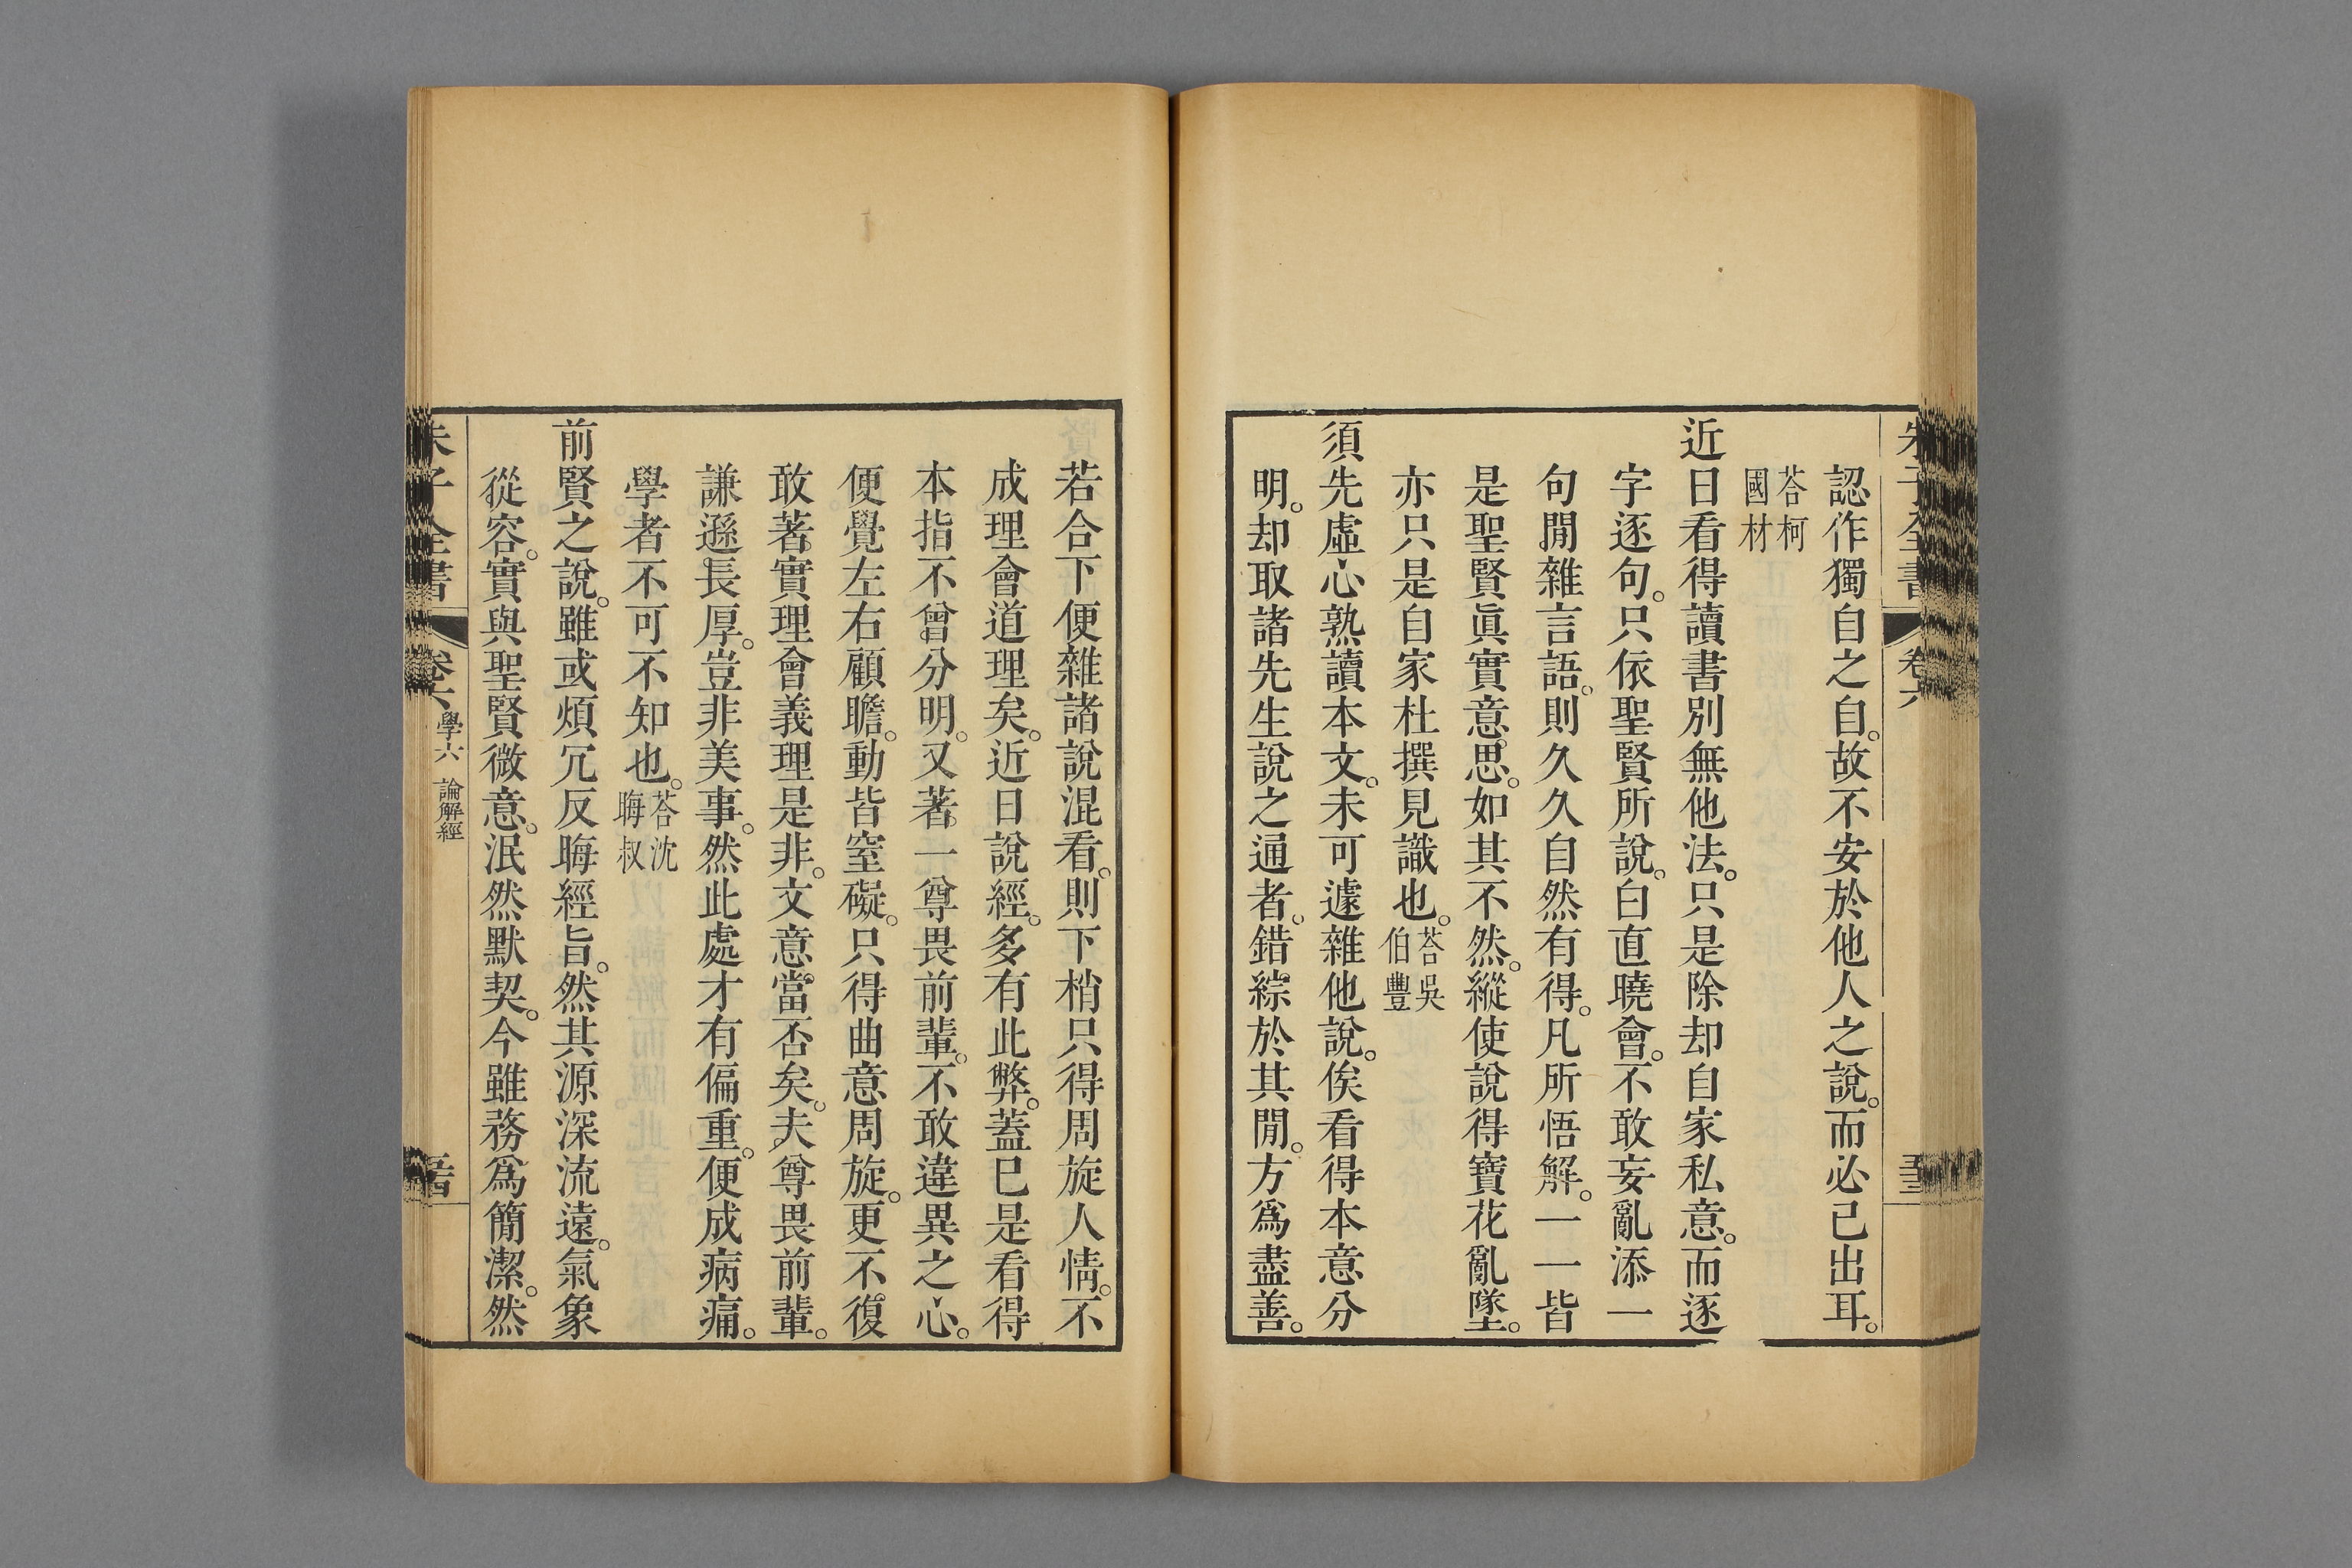 朱子全書
卷六
認作獨自之自。故不安於他人之說。而必己出耳。
荅柯
國材
近日看得讀書別無他法。只是除却自家私意。而逐
字逐句。只依聖賢所說。白直曉會。不敢妄亂添一
句閒雜言語。則久久自然有得。凡所悟解。一一皆
是聖賢眞實意思。如其不然。縱使說得寶花亂墜。
亦只是自家杜撰見識也。荅吳
伯豐
須先虛心熟讀本文。未可遽雜他說。俟看得本意分
明。却取諸先生說之通者。錯綜於其閒。方爲盡善。
若合下便雜諸說混看。則下梢只得周旋人情。不
成理會道理矣。近日說經。多有此弊。蓋已是看得
本指不曾分明。又著一尊畏前輩。不敢違異之心。
便覺左右顧瞻。動皆窒礙。只得曲意周旋。更不復
敢著實理會義理是非。文意當否矣。夫尊畏前輩。
謙遜長厚。豈非美事。然此處才有偏重。便成病痛。
學者不可不知也。荅沈
晦叔
前賢之說。雖或煩冗反晦經旨。然其源深流遠。氣象
從容。實與聖賢微意。泯然默契。今雖務爲簡潔。然
朱子全書
卷六
學六
論解經